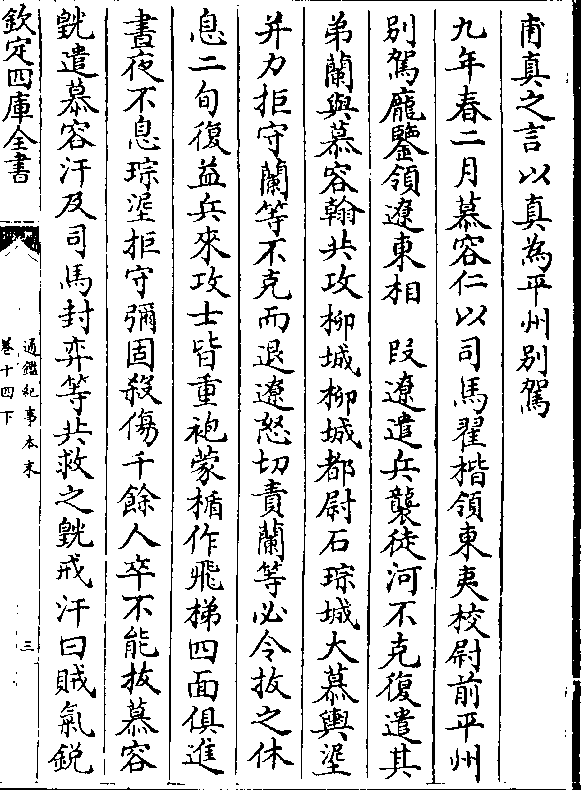 甫真之言以真為平州别駕
九年春二月慕容仁以司馬翟楷領東夷校尉前平州
别駕龐鑒領遼東相　段遼遣兵襲徒河不克復遣其
弟蘭與慕容翰共攻柳城柳城都尉石琮城大慕輿埿
并力拒守蘭等不克而退遼怒切責蘭等必令拔之休
息二旬復益兵來攻士皆重袍蒙楯作飛梯四面俱進
晝夜不息琮埿拒守彌固殺傷千餘人卒不能拔慕容
皝遣慕容汗及司馬封弈等共救之皝戒汗曰賊氣鋭
欽定四庫全書
通鑑紀事本末
卷十四下
三